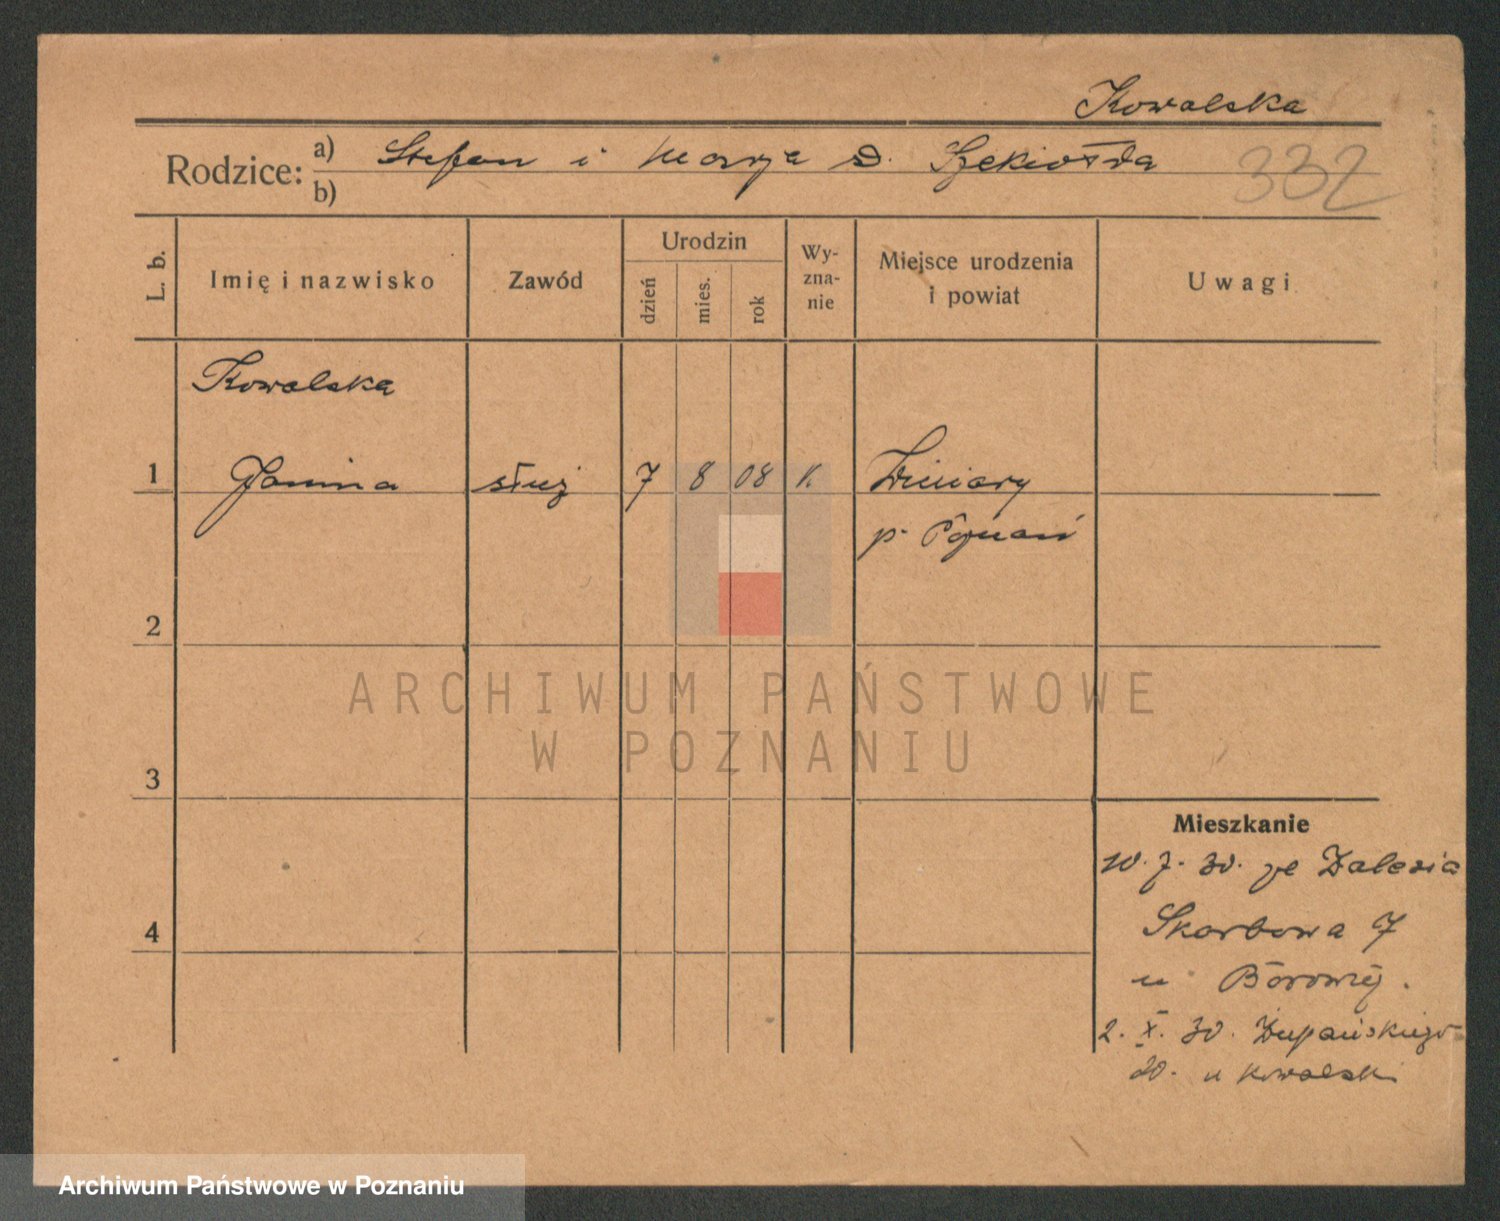 Kowalska
Rodzice: a) Stefan i Marja d. Szekiołda
b)
332
L. b.
Imię i nazwisko
Zawód
Urodzin
dzień
mies.
rok
Wy-
zna-
nie
Miejsce urodzenia
i powiat
Uwagi
Kowalska
1 Janina służ 7 8 08 k. Winiary
p. Poznań
2
3
4
ARCHIWUM PAŃSTWOWE
W POZNANIU
Mieszkanie
10. 7. 30. ze Zalesia
Skarbowa 7
u Borowej.
2. X. 30. Żupańskiego
20. u Kowalski
Archiwum Państwowe w Poznaniu